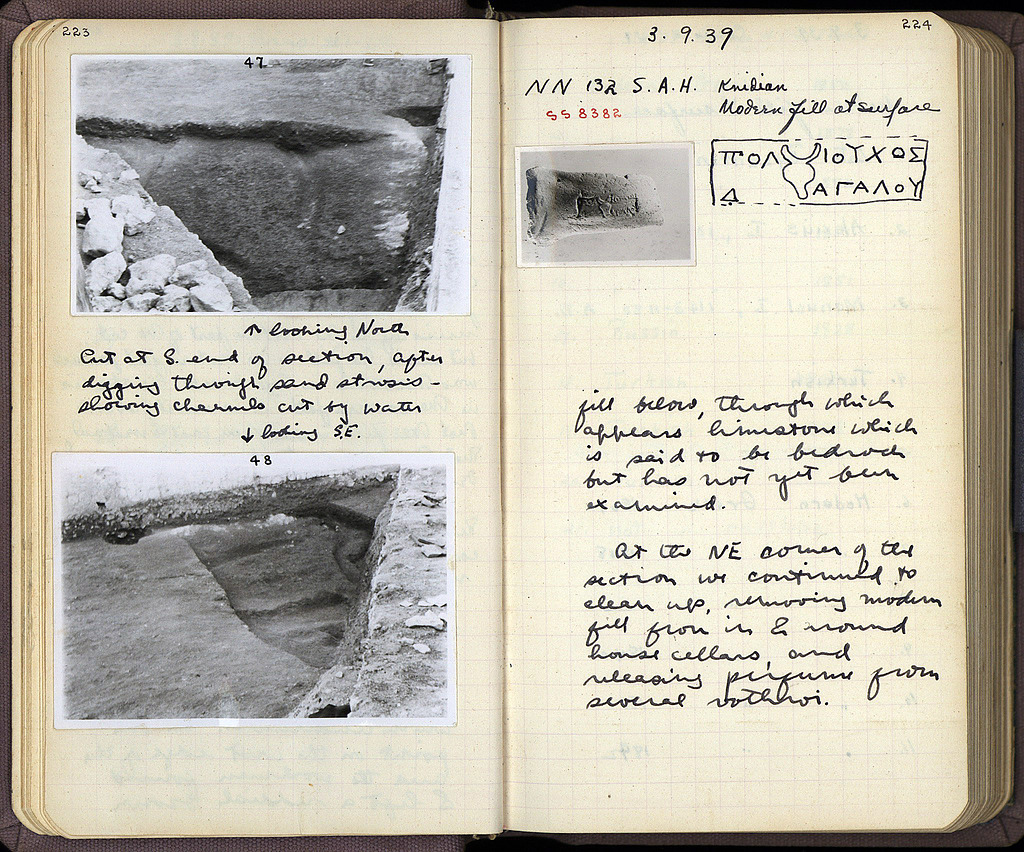 223
47
↑ looking North
Cut at S. end of section, after
digging through sand strosis –
showing channels cut by water
↓ looking S.E.
48
224
3.9.39
NN 132 S.A.H. Knidian
SS 8382
Modern fill at surface
ΠΟΛΙΟΥΧΟΣ
Δ ΑΓΑΛΟΥ
fill below, through which
appears limestone which
is said to be bedrock
but has not yet been
examined.
At the NE corner of the
section we continued to
clean up, removing modern
fill from in & around
house cellars, and
releasing perfume from
several vothroi.